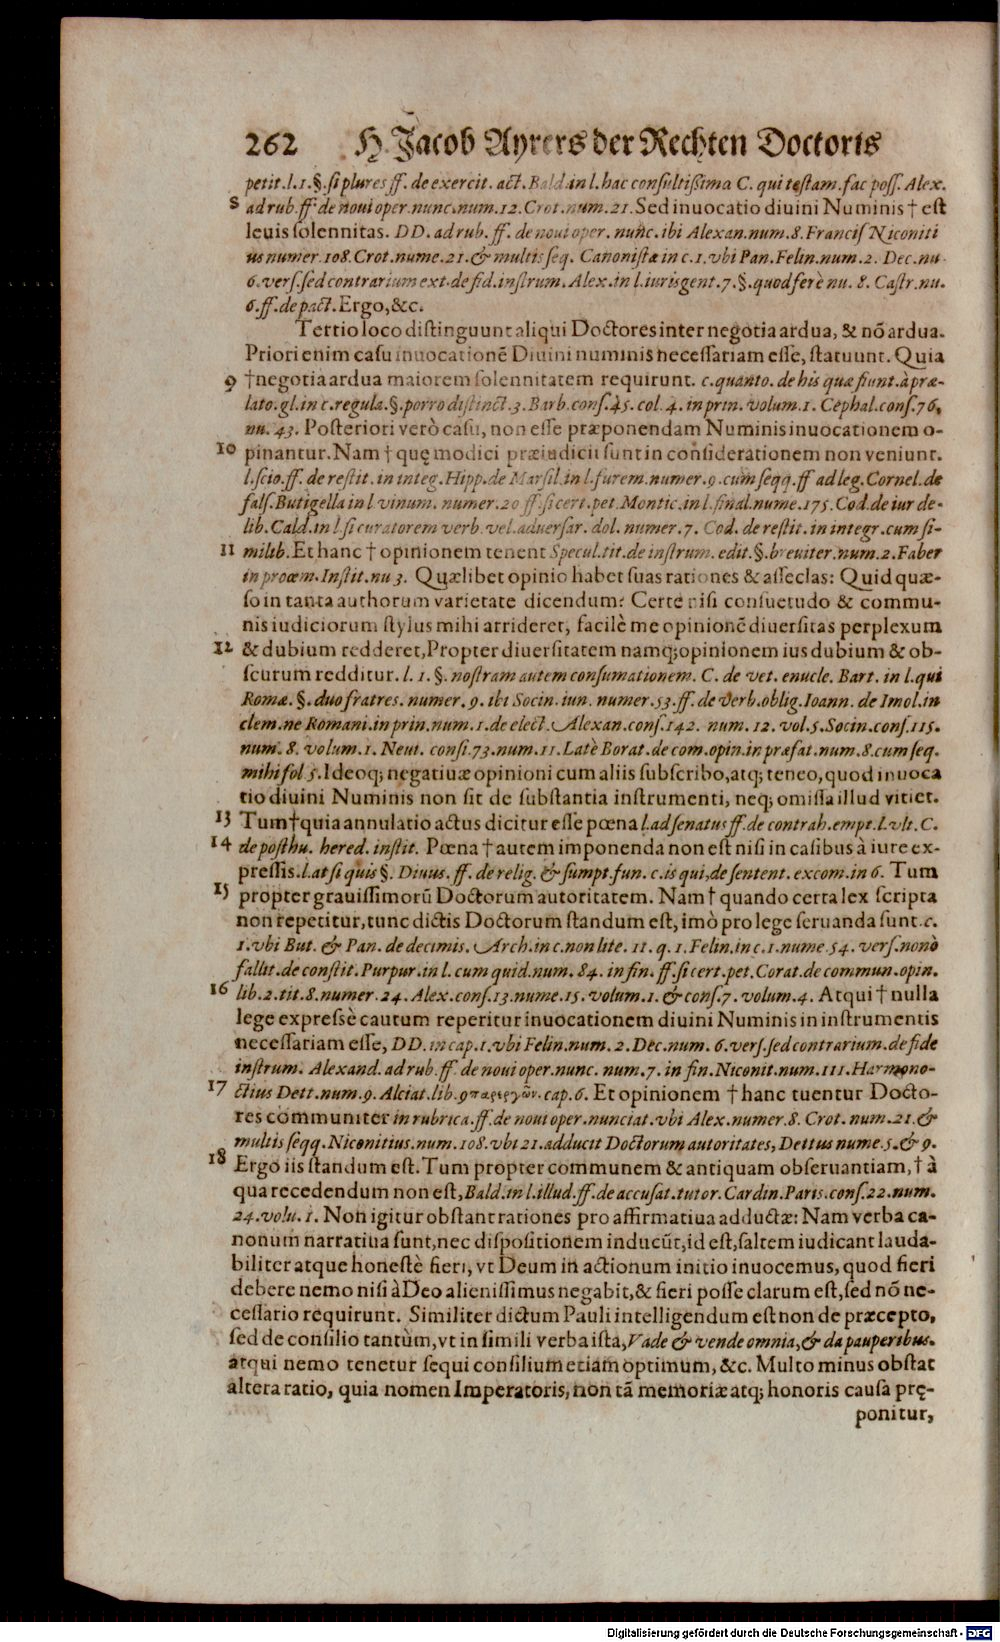 262 H. Jacob Ayrers der Rechten Doctoris
petit. l. 1. §. si plures ff. de exercit. act. Bald. in l. hac consultißima C. qui testam. fac poss. Alex.
8 ad rub. ff. de noui oper. nunc. num. 12. Crot. num. 21. Sed inuocatio diuini Numinis † est
leuis solennitas. DD. ad rub. ff. de noui oper. nunc. ibi Alexan. num. 8. Francis Niconiti
us numer. 108. Crot. nume. 21. & multis seq. Canonistæ in c. 1. vbi Pan. Felin. num. 2. Dec. nu.
6. vers. sed contrarium ext. de fid. instrum. Alex. in l. iurisgent. 7. §. quod ferè nu. 8. Castr. nu.
6. ff. de pact. Ergo, &c.
Tertio loco distinguunt aliqui Doctores inter negotia ardua, & nō ardua.
Priori enim casu inuocationē Diuini numinis necessariam esse, statuunt. Quia
9 † negotia ardua maiorem solennitatem requirunt. c. quanto. de his quæ fiunt. à præ-
lato. gl. in c. regula. §. porro distinct. 3. Barb. cons. 45. col. 4. in prin. volum. 1. Cephal. cons. 76.
nu. 43. Posteriori verò casu, non esse præponendam Numinis inuocationem o-
10 pinantur. Nam † quę modici præiudicii sunt in considerationem non veniunt.
l. scio. ff. de restit. in integ. Hipp. de Marsil. in l. furem. numer. 9. cum seqq. ff ad leg. Cornel. de
fals. Butigella in l vinum. numer. 20 ff. si cert. pet. Montic. in l. final. nume. 175. Cod. de iur de-
lib. Cald. in l. si curatorem verb. vel. aduersar. dol. numer. 7. Cod. de restit. in integr. cum si-
11 milib. Et hanc † opinionem tenent Specul. tit. de instrum. edit. §. breuiter. num. 2. Faber
in proœm. Instit. nu 3. Quælibet opinio habet suas rationes & asseclas: Quid quæ-
so in tanta authorum varietate dicendum? Certe nisi consuetudo & commu-
nis iudiciorum stylus mihi arrideret, facilè me opinionē diuersitas perplexum
12 & dubium redderet, Propter diuersitatem namq; opinionem ius dubium & ob-
scurum redditur. l. 1. §. nostram autem consumationem. C. de vet. enucle. Bart. in l. qui
Romæ. §. duo fratres. numer. 9. ibi Socin. iun. numer. 53. ff. de verb. oblig. Ioann. de Imol. in
clem. ne Romani. in prin. num. 1. de elect. Alexan. cons. 142. num. 12. vol. 5. Socin. cons. 115.
num. 8. volum. 1. Neui. consi. 73. num. 11. Latè Borat. de com. opin. in præfat. num. 8. cum seq.
mihi fol 5. Ideoq; negatiuæ opinioni cum aliis subscribo, atq; teneo, quod inuoca
tio diuini Numinis non sit de substantia instrumenti, neq; omissa illud vitiet.
13 Tum † quia annulatio actus dicitur esse pœna l. ad senatus ff. de contrah. empt. l. vlt. C.
14 de posthu. hered. instit. Pœna † autem imponenda non est nisi in casibus à iure ex-
pressis. l. at si quis §. Diuus. ff. de relig. & sumpt. fun. c. is qui, de sentent. excom. in 6. Tum
15 propter grauissimorū Doctorum autoritatem. Nam † quando certa lex scripta
non repetitur, tunc dictis Doctorum standum est, imò pro lege seruanda sunt. c.
1. vbi But. & Pan. de decimis. Arch. in c. non lite. 11. q. 1. Felin. in c. 1. nume. 54. vers. nonò
fallit. de constit. Purpur. in l. cum quid. num. 84. in fin. ff. si cert. pet. Corat. de commun. opin.
16 lib. 2. tit. 8. numer. 24. Alex. cons. 13. nume. 15. volum. 1. & cons. 7. volum. 4. Atqui † nulla
lege expressè cautum reperitur inuocationem diuini Numinis in instrumentis
necessariam esse, DD. in cap. 1. vbi Felin. num. 2. Dec. num. 6. vers. sed contrarium. de fide
instrum. Alexand. ad rub. ff. de noui oper. nunc. num. 7. in fin. Niconit. num. 111. Harmono-
17 ctius Dett. num. 9. Alciat. lib. 9 παρεργῶν. cap. 6. Et opinionem † hanc tuentur Docto-
res communiter in rubrica. ff. de noui oper. nunciat. vbi Alex. numer. 8. Crot. num. 21. &
multis seqq. Niconitius. num. 108. vbi 21. adducit Doctorum autoritates, Dettus nume. 5. & 9.
18 Ergo iis standum est. Tum propter communem & antiquam obseruantiam, † à
qua recedendum non est, Bald. in l. illud. ff. de accusat. tutor. Cardin. Paris. cons. 22. num.
24. volu. 1. Non igitur obstant rationes pro affirmatiua adductæ: Nam verba ca-
nonum narratiua sunt, nec dispositionem inducūt, id est, saltem iudicant lauda-
biliter atque honestè fieri, vt Deum in actionum initio inuocemus, quod fieri
debere nemo nisi à Deo alienissimus negabit, & fieri posse clarum est, sed nō ne-
cessario requirunt. Similiter dictum Pauli intelligendum est non de præcepto,
sed de consilio tantùm, vt in simili verba ista, Vade & vende omnia, & da pauperibus.
atqui nemo tenetur sequi consilium etiam optimum, &c. Multo minus obstat
altera ratio, quia nomen Imperatoris, non tā memoriæ atq; honoris causa prę-
ponitur,
Digitalisierung gefördert durch die Deutsche Forschungsgemeinschaft - DFG